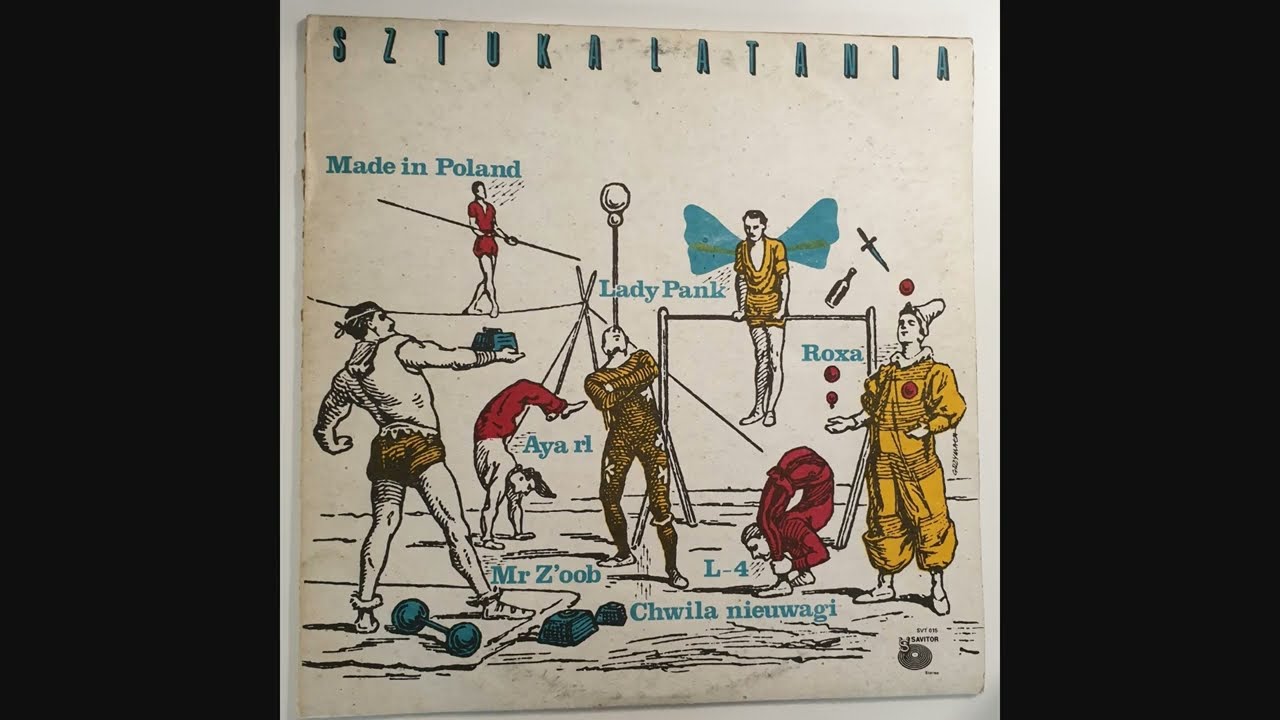 SZTUKA LATANIA
Made in Poland
Lady Pank
Roxa
Aya rl
Mr Z'oob
L-4
Chwila nieuwagi
SVT 615
SAVITOR
Stereo